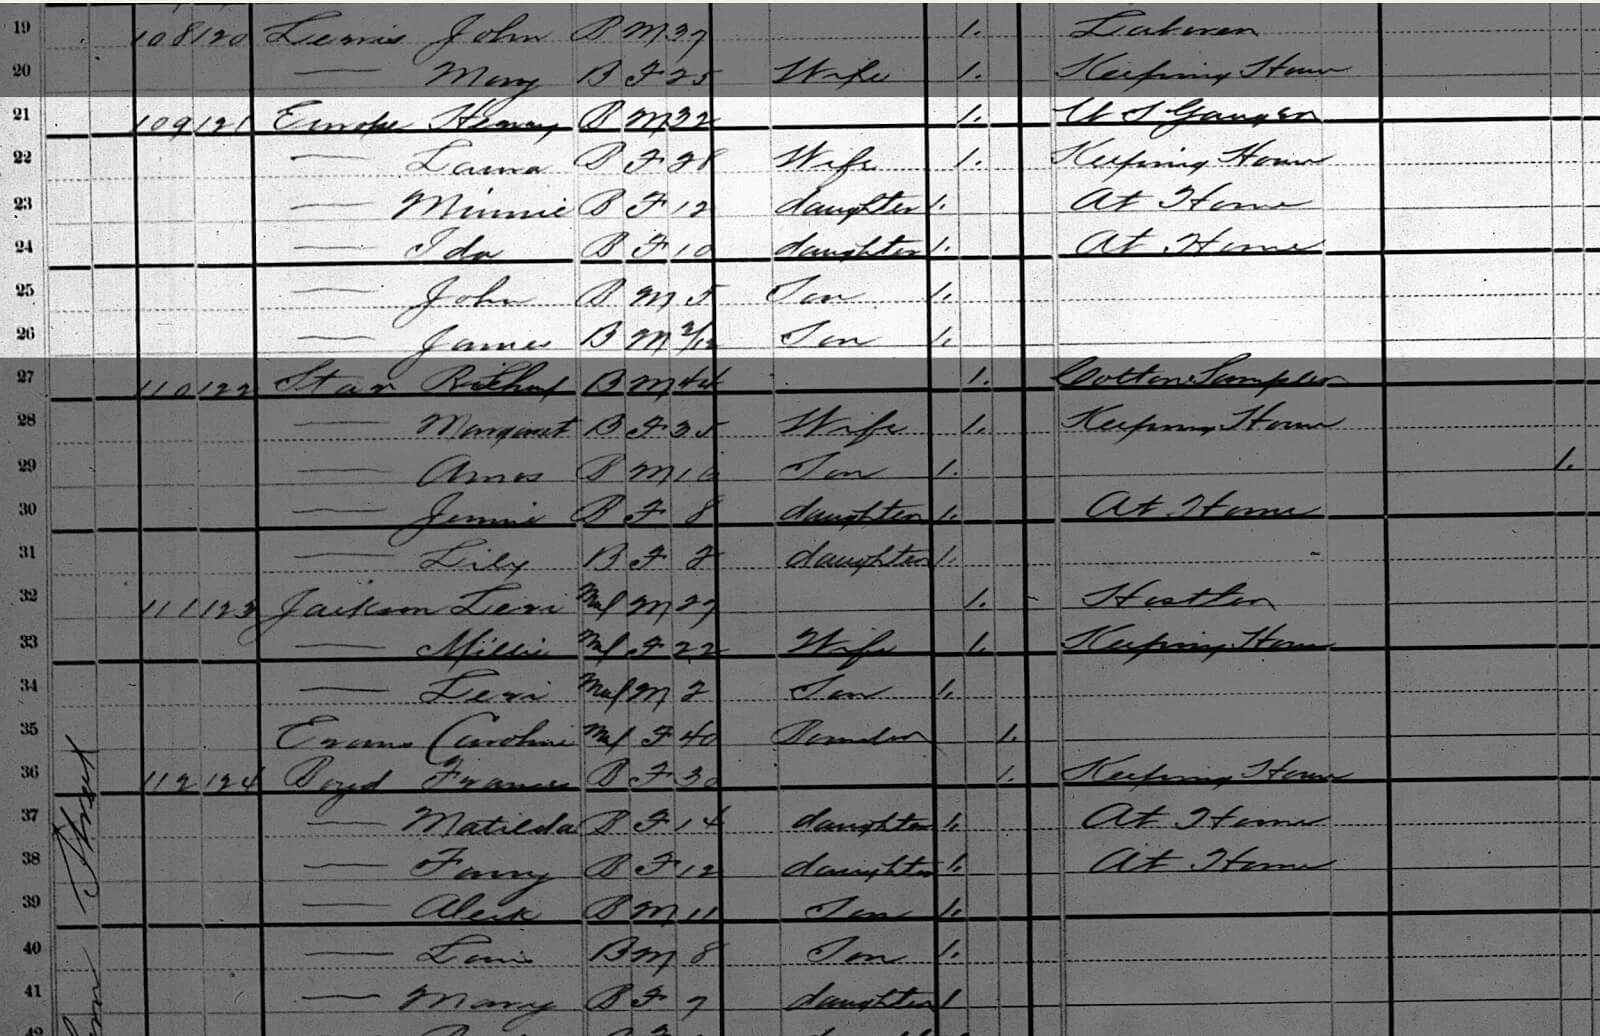 19 108 120 Lewis John B M 37 1. Laborer
20 — Mary B F 25 Wife 1. Keeping House
21 109 121 Europe Henry B M 32 1. U S Gauger
22 — Laura B F 28 Wife 1. Keeping House
23 — Minnie B F 12 daughter 1. At Home
24 — Ida B F 10 daughter 1. At Home
25 — John B M 5 Son 1.
26 — James B M 2/12 Son 1.
27 110 122 Star B M 44 1. Cotton Sampler
28 — Margaret B F 35 Wife 1. Keeping House
29 — Amos B M Son 1. 1.
30 — Jennie B F 8 daughter 1. At Home
31 — Lily B F 2 daughter 1.
32 111 123 Jackson Levi Mul M 27 1. Hostler
33 — Millie Mul F 22 Wife 1. Keeping House
34 — Levi Mul M 2 Son 1.
35 Evans Caroline Mul F 40 Boarder 1.
36 112 124 Boyd Frances B F 30 1. Keeping House
37 — Matilda B F 14 daughter 1. At Home
38 — Fanny B F 12 daughter 1. At Home
39 — Aleck B M 11 Son 1.
40 — Louis B M 8 Son 1.
41 — Mary B F 7 daughter 1
42
Street